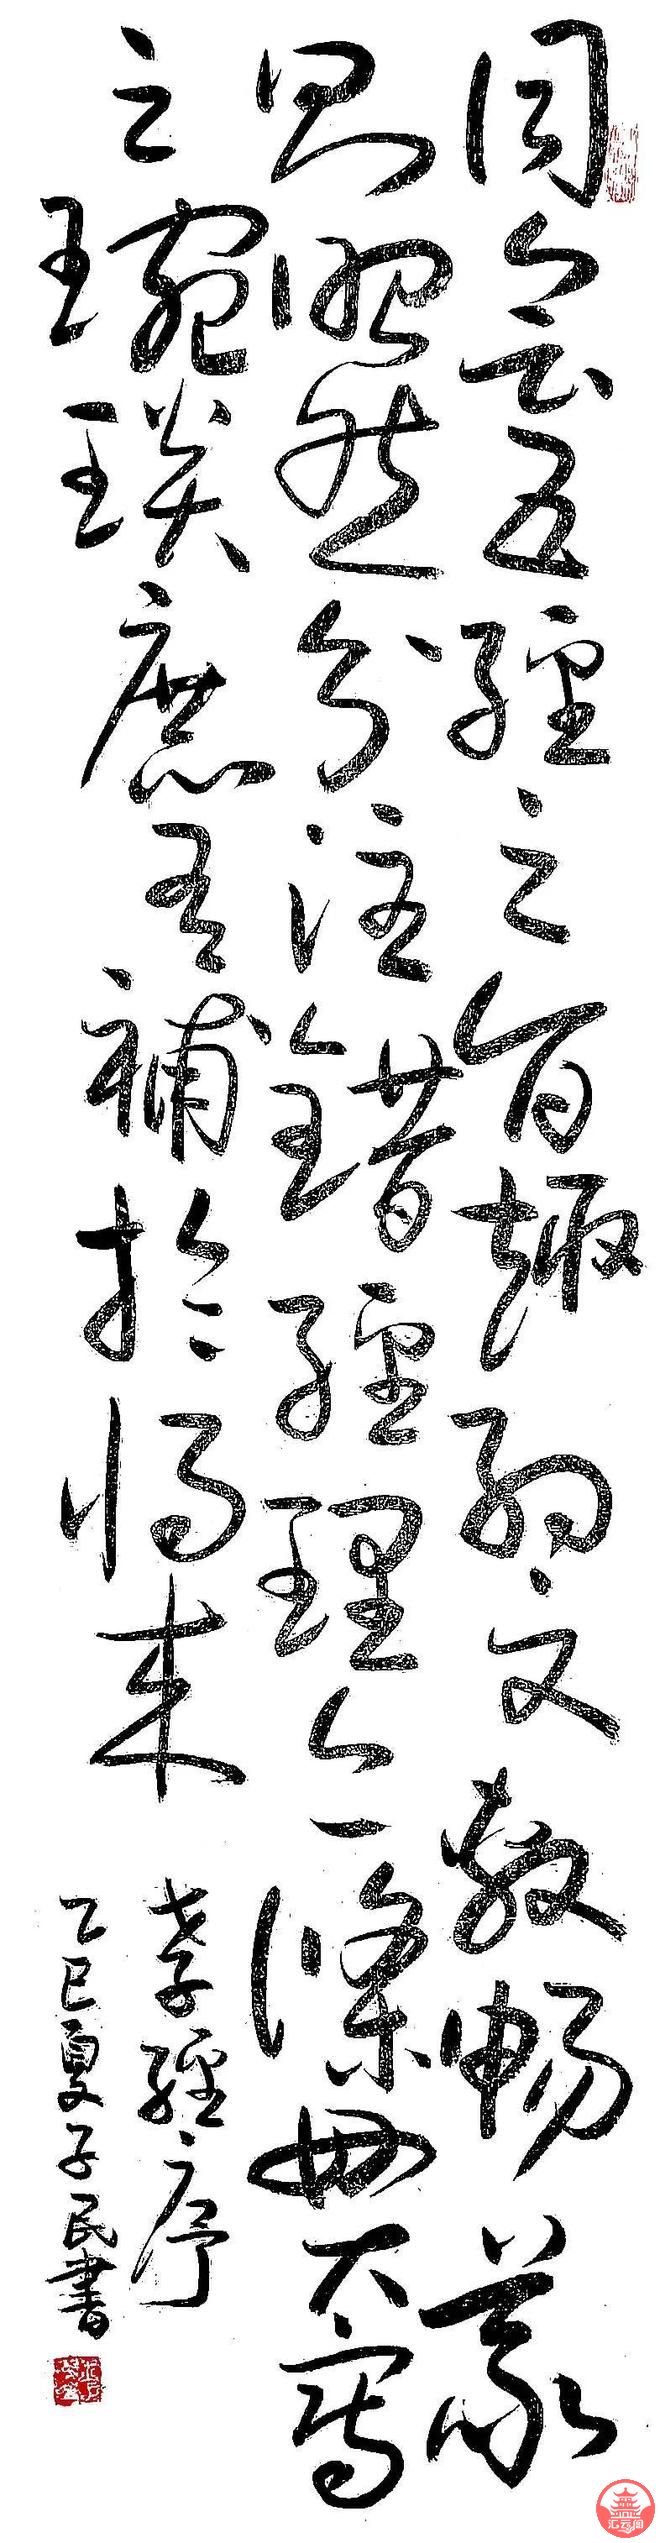 同會五經之旨趣約文敷暢義
則昭然分注錯經理亦條貫寫
之琬琰庶有補於將来
孝經序
乙巳夏子民書